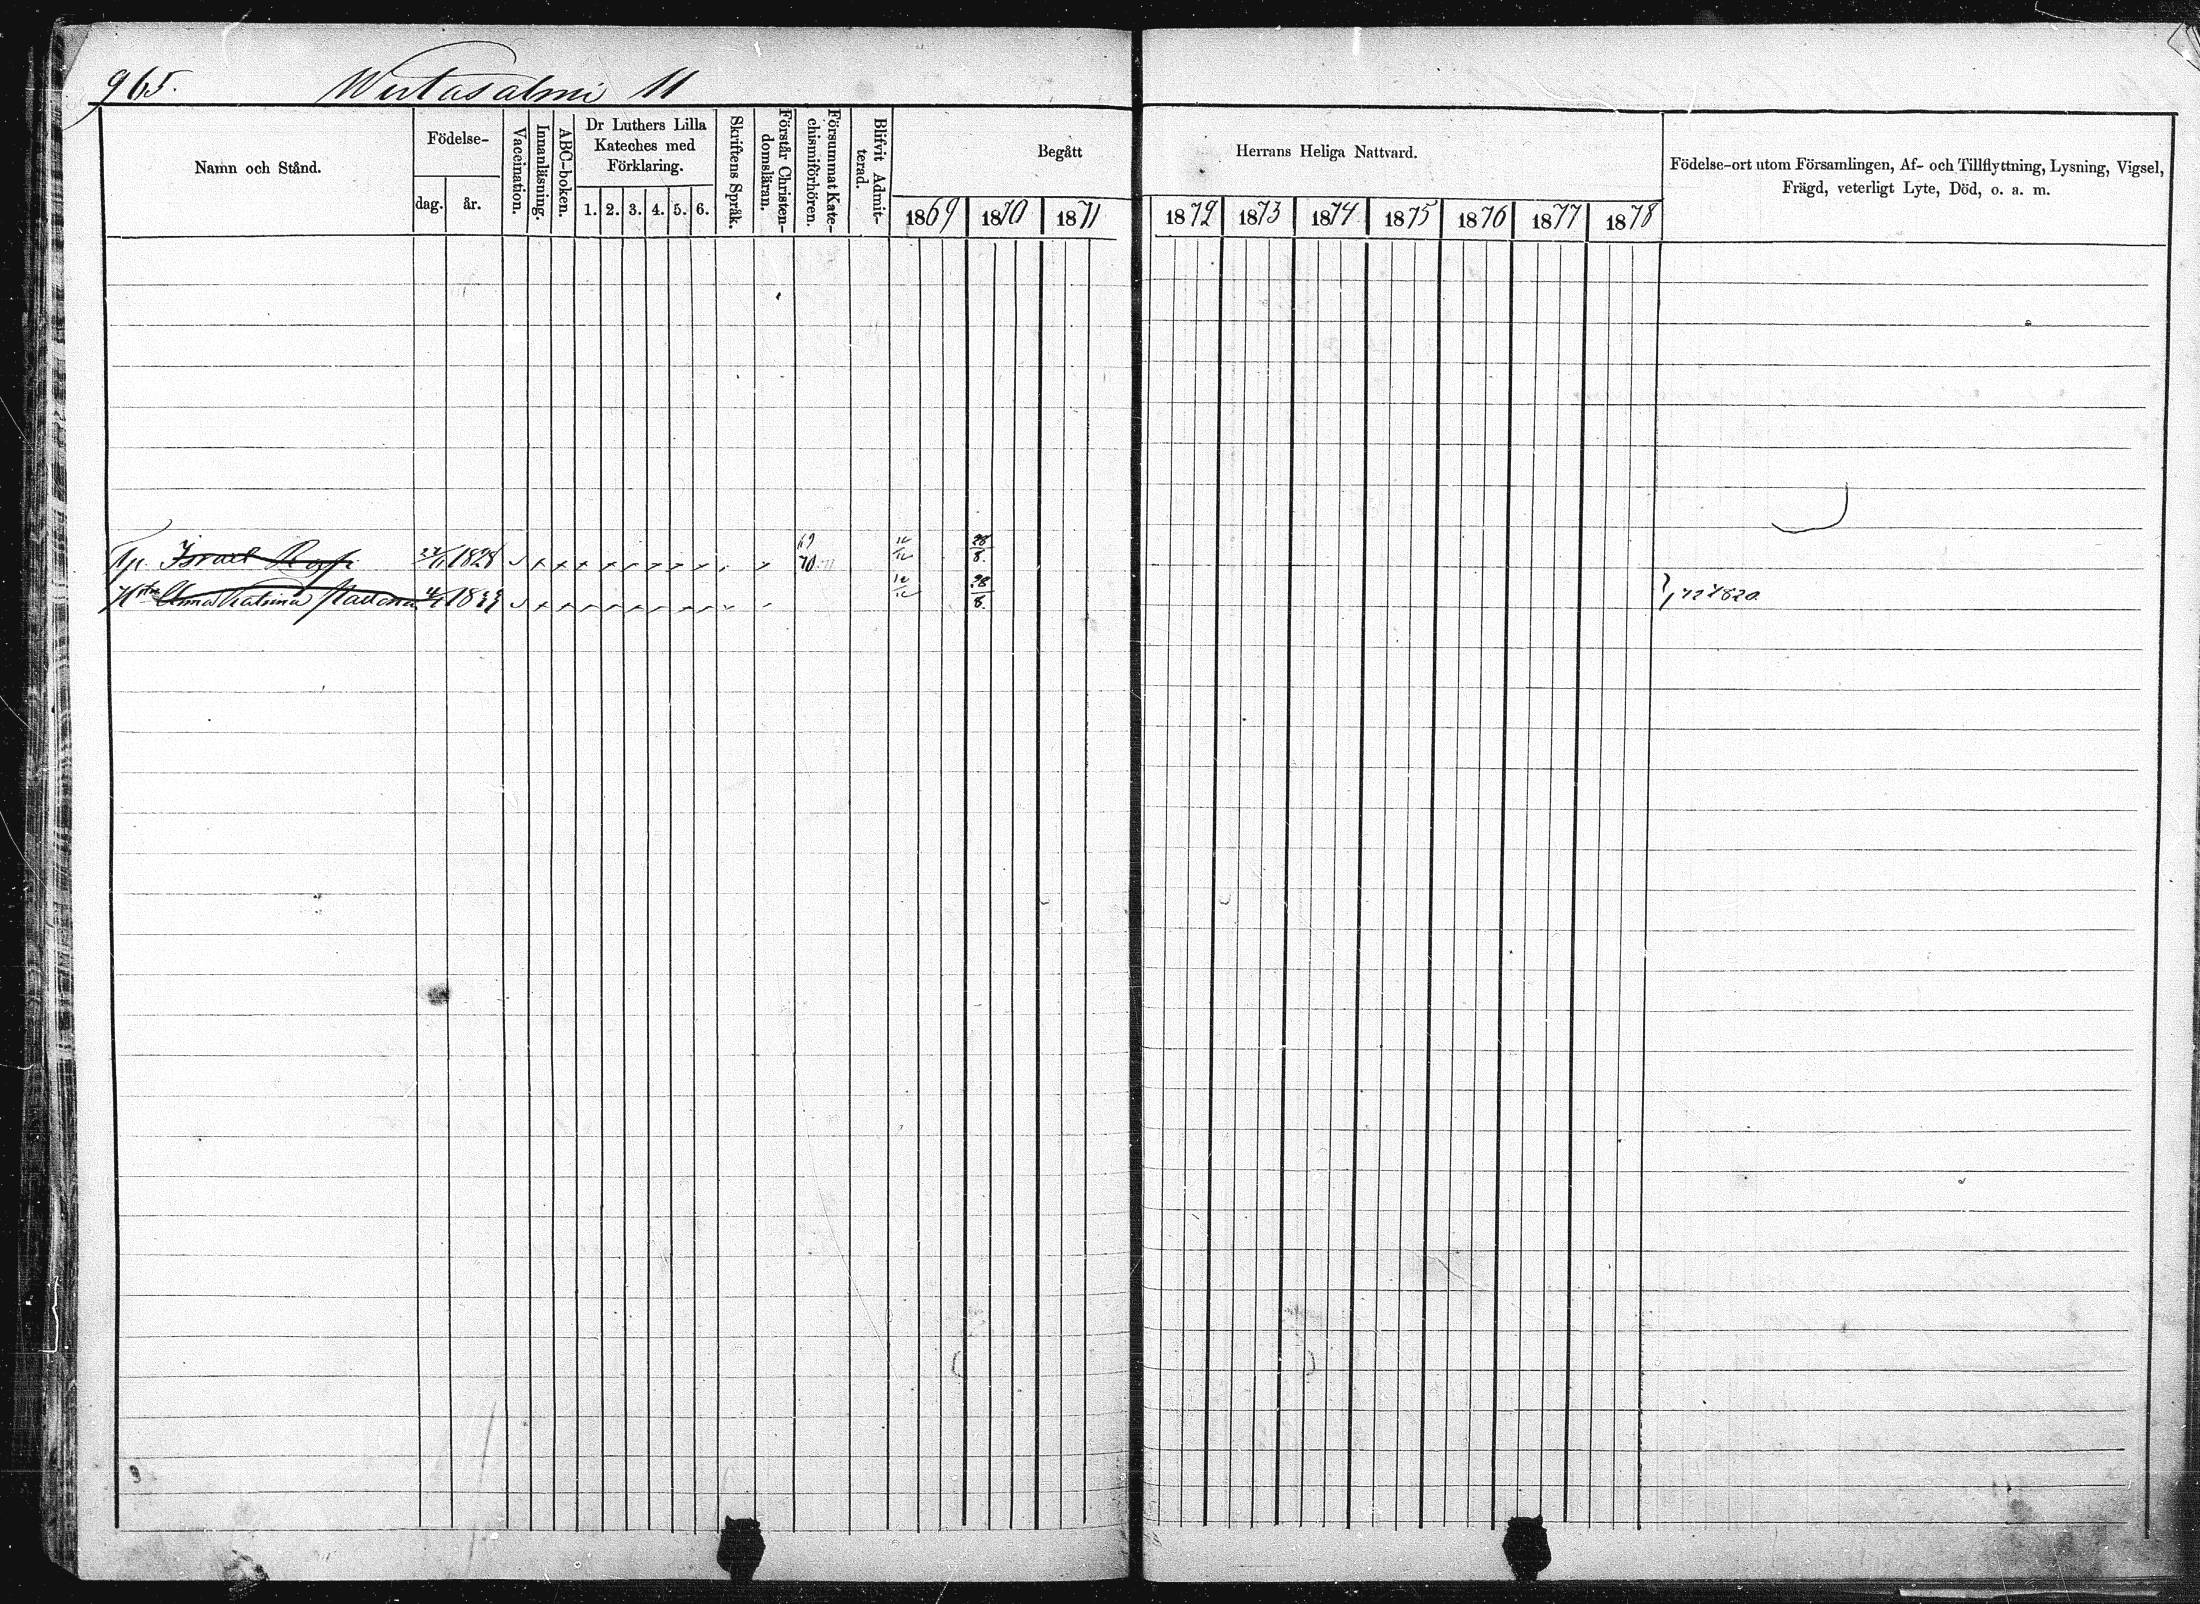 965. Wirtasalmi 11
Namn och Stånd.
Födelse-
dag. år.
Vaccination.
Innanläsning.
ABC-boken.
Dr Luthers Lilla
Kateches med
Förklaring.
1. 2. 3. 4. 5. 6.
Skriftens Språk.
Förstår Christen-
domsläran.
Försummat Kate-
chismiförhören.
Blifvit Admit-
terad.
Begått Herrans Heliga Nattvard.
1869 1870 1871 1872 1873 1874 1875 1876 1877 1878
Födelse-ort utom Församlingen, Af- och Tillflyttning, Lysning, Vigsel,
Frägd, veterligt Lyte, Död, o. a. m.
Israel 1828 69 70 28/8
Anna Katrina 1833 28/8